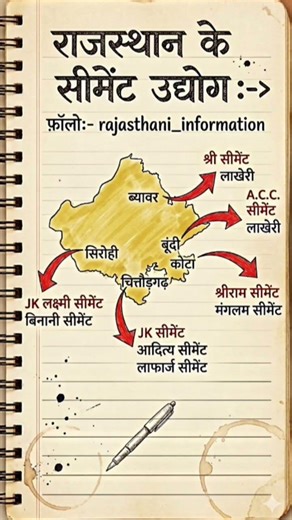 राजस्थान के
सीमेंट उद्योग :->
फ़ॉलो:- rajasthani_information
श्री सीमेंट
लाखेरी
ब्यावर
A.C.C.
सीमेंट
लाखेरी
सिरोही
बूंदी
कोटा
चित्तौड़गढ़
श्रीराम सीमेंट
मंगलम सीमेंट
JK लक्ष्मी सीमेंट
बिनानी सीमेंट
JK सीमेंट
आदित्य सीमेंट
लाफार्ज सीमेंट